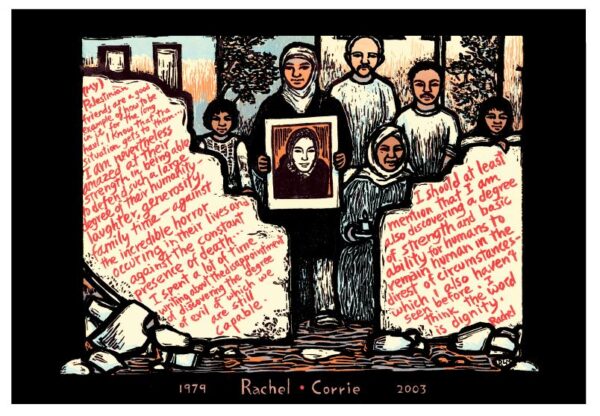 (My)
Palestinian
friends are a good
example of how to be
in it for the long
haul. I know that the
situation gets to them...
I am nevertheless
amazed at their
strength in being able
to defend such a large
degree of their humanity
laughter, generosity,
family time — against
the incredible horror
occuring in their lives and
against the constant
presence of death.
I spent a lot of time
writing about the disappointment
of discovering the degree
of evil of which we
are still
capable.
I should at least
mention that I am
also discovering a degree
of strength and basic
ability for humans to
remain human in the
direst of circumstances-
which I also haven't
seen before. I
think the word
is dignity.
Rachel
1979 Rachel • Corrie 2003